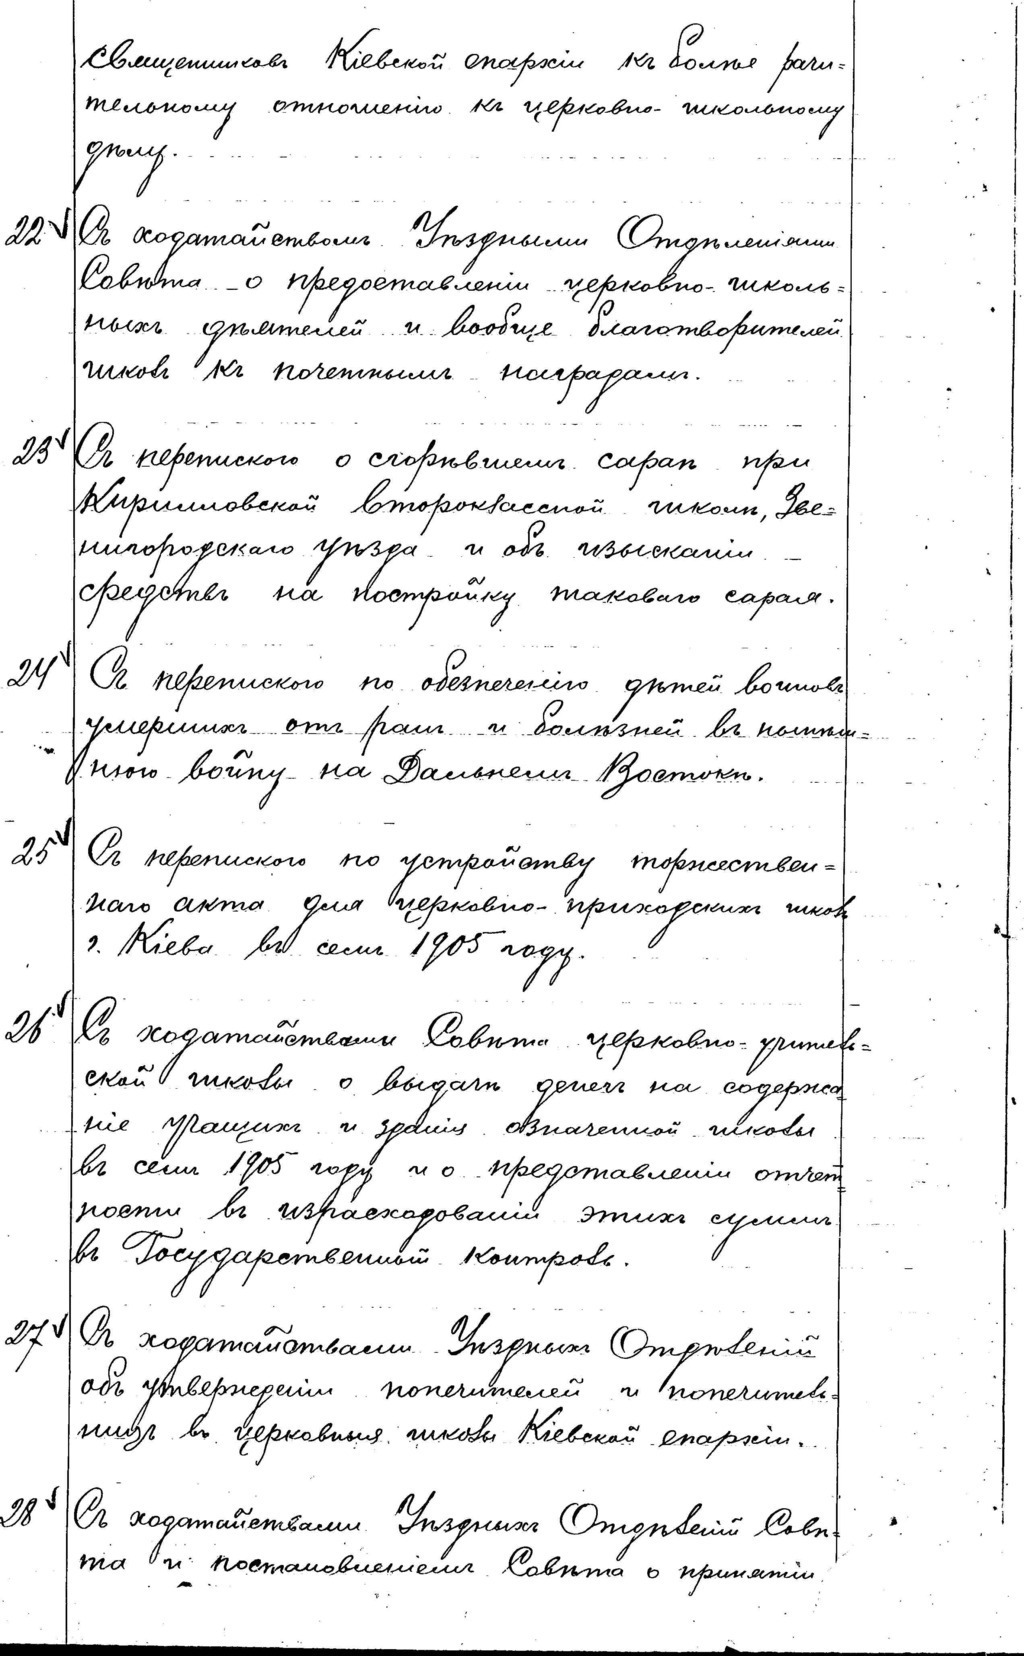 священниковъ Кіевской епархіи къ болѣе рачи=
тельному отношенію къ церковно-школьному
дѣлу.
22 Съ ходатайствомъ Уѣздными Отдѣленіями
Совѣта о предоставленіи церковно-школь=
ныхъ дѣятелей и вообще благотворителей
школъ къ почетнымъ наградамъ.
23 Съ перепискою о сгорѣвшемъ сараѣ при
Кирилловской второклассной школѣ, Зве=
нигородскаго уѣзда и объ изысканіи
средствъ на постройку таковаго сарая.
24 Съ перепискою по обезпеченію дѣтей воиновъ
умершихъ отъ ранъ и болѣзней въ нынѣш=
нюю войну на Дальнемъ Востокѣ.
25 Съ перепискою по устройству торжествен=
наго акта для церковно-приходскихъ школъ
г. Кіева въ семъ 1905 году.
26 Съ ходатайствами Совѣта церковно-учитель=
ской школы о выдачѣ денегъ на содержа
ніе учащихъ и зданія означенной школы
въ семъ 1905 году и о представленіи отчет
ности въ израсходованіи этихъ суммъ
въ Государственный контроль.
27 Съ ходатайствами Уѣздныхъ Отдѣленій
объ утвержденіи попечителей и попечитель=
ницъ въ церковныя школы Кіевской епархіи.
28 Съ ходатайствами Уѣздныхъ Отдѣленій Совѣ=
та и постановленіемъ Совѣта о принятіи